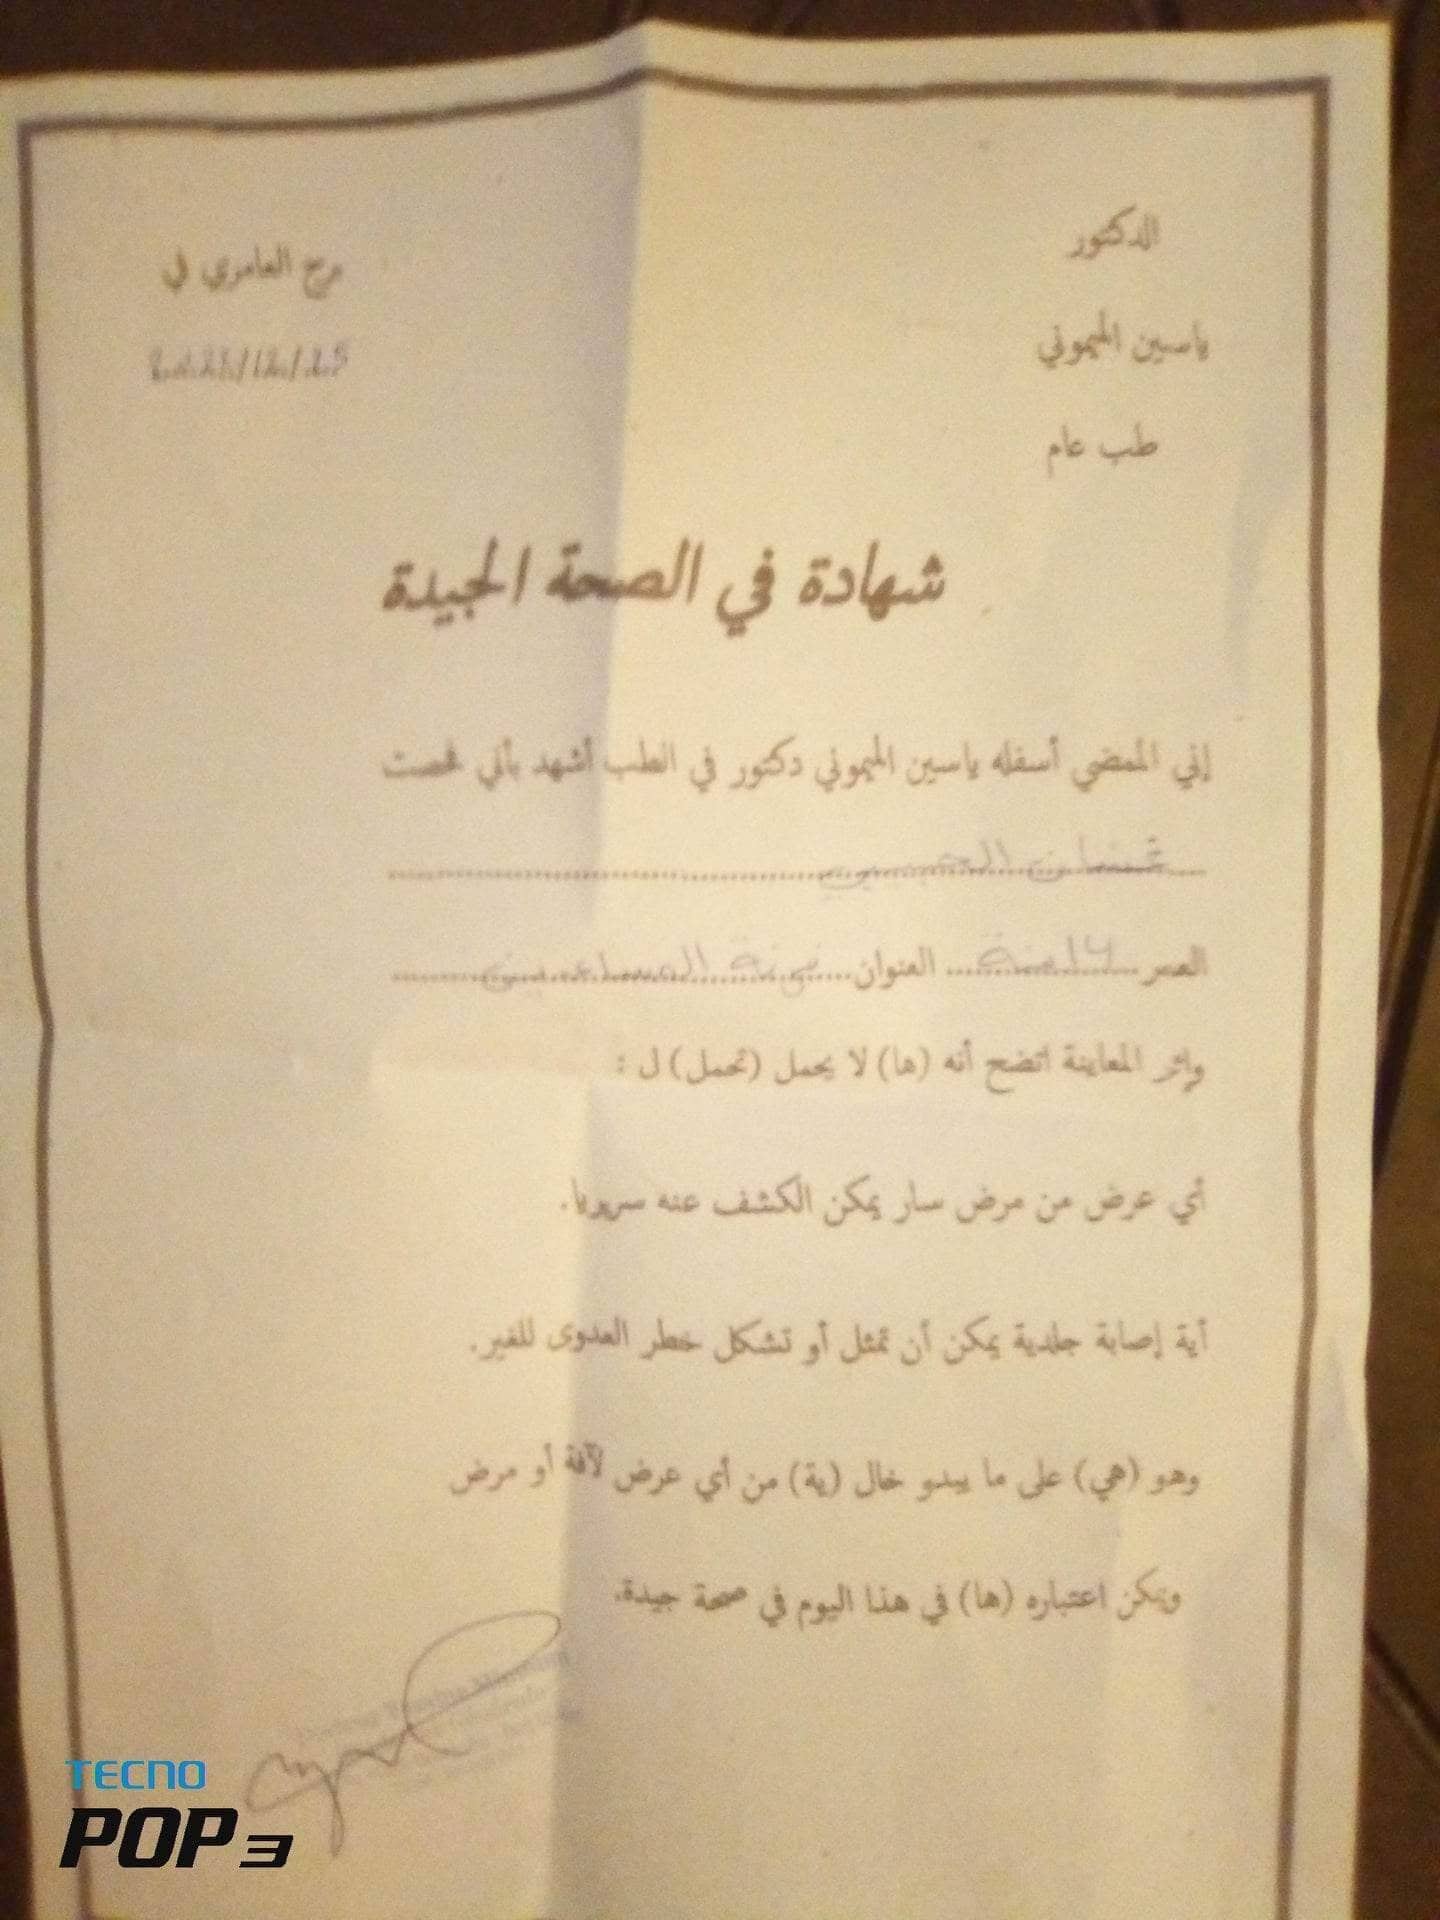 الدكتور
ياسين الميموني
طب عام
مرج العامري في
شهادة في الصحة الجيدة
إني الممضي أسفله ياسين الميموني دكتور في الطب أشهد بأني فحصت
غسان
العمر العنوان
وإثر المعاينة اتضح أنه (ها) لا يحمل (تحمل) ل :
أي عرض من مرض سار يمكن الكشف عنه سريريا.
أية إصابة جلدية يمكن أن تمثل أو تشكل خطر العدوى للغير.
وهو (هي) على ما يبدو خال (ية) من أي عرض لآفة أو مرض
ويمكن اعتباره (ها) في هذا اليوم في صحة جيدة.
TECNO
POP 3